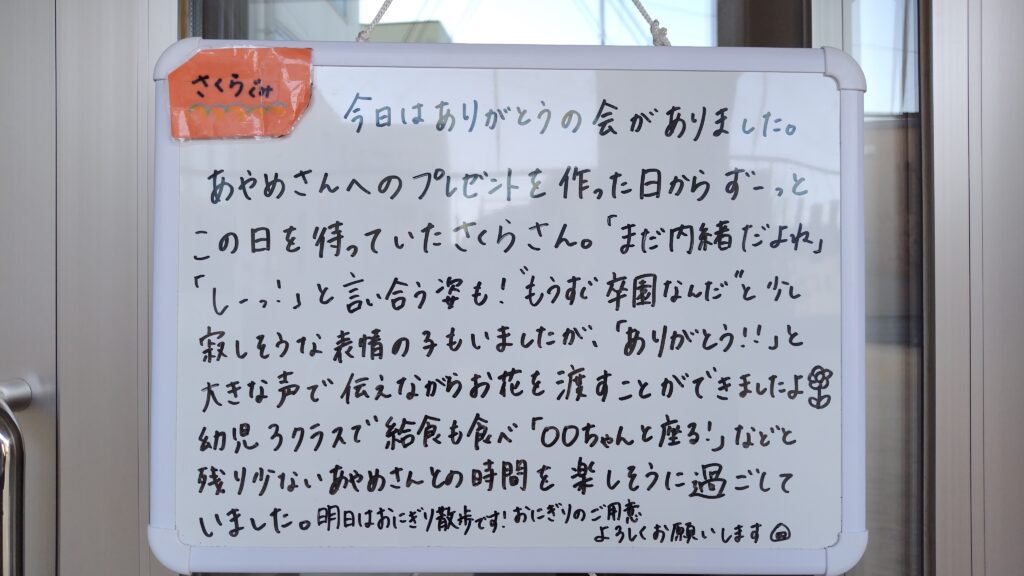 さくらぐみ
今日はありがとうの会がありました。
あやめさんへのプレゼントを作った日からずーっと
この日を待っていたさくらさん。「まだ内緒だよね」
「しーっ!」と言い合う姿も!"もうすぐ卒園なんだ"と少し
寂しそうな表情の子もいましたが、「ありがとう!!」と
大きな声で伝えながらお花を渡すことができましたよ
幼児3クラスで給食も食べ「〇〇ちゃんと座る!」などと
残り少ないあやめさんとの時間を楽しそうに過ごして
いました。明日はおにぎり散歩です!おにぎりのご用意
よろしくお願いします